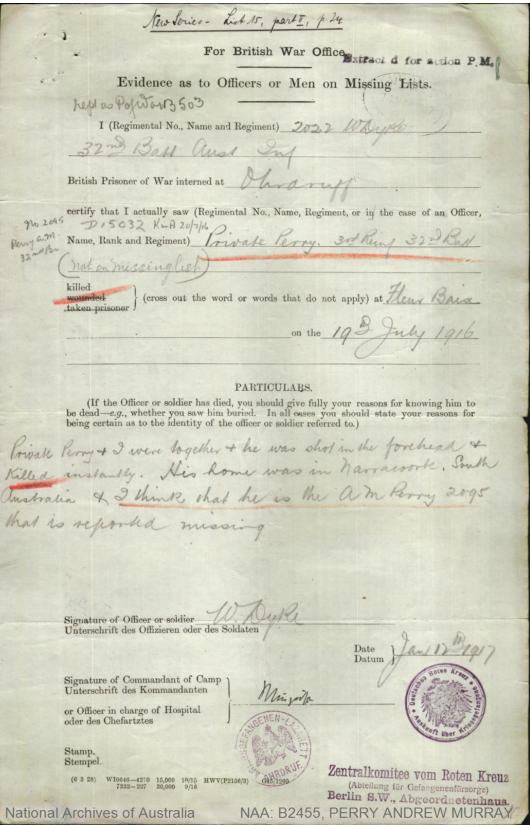 New Series - List 15, part I, p. 24
For British War Office.
Extracted for action P.M.
Evidence as to Officers or Men on Missing Lists.
Rept as P of War B 503
I (Regimental No., Name and Regiment) 2022 W Dyke
32nd Batt Aust Inf
British Prisoner of War interned at Ohrdruff
certify that I actually saw (Regimental No., Name, Regiment, or in the case of an Officer,
D 15032 K in A 20/7/16
No 2095
Perry A.M
32nd Bn
Name, Rank and Regiment) Private Perry. 3rd Reinf 32nd Batt
(Not on missing list)
killed
wounded
taken prisoner
(cross out the word or words that do not apply) at Fleur Baix
on the 19th July 1916
PARTICULARS.
(If the Officer or soldier has died, you should give fully your reasons for knowing him to
be dead—e.g., whether you saw him buried. In all cases you should state your reasons for
being certain as to the identity of the officer or soldier referred to.)
Private Perry & I were together & he was shot in the forehead &
killed instantly. His home was in Narracoork, South
Australia & I think that he is the A M Perry 2095
that is reported missing
Signature of Officer or soldier W. Dyke
Unterschrift des Offizieren oder des Soldaten
Date Jan 12th 1917
Datum
Signature of Commandant of Camp
Unterschrift des Kommandanten
or Officer in charge of Hospital
oder des Chefarztes
Deutsches Rotes Kreuz
Auskunft über Kriegsgefangene
GEFANGENEN-LAZARETT
OHRDRUF
Stamp.
Stempel.
(6 3 28) W10646—4210 15,000 10/15 HWV(P2156/3)
7332—227 20,000 9/16
Zentralkomitee vom Roten Kreuz
(Abteilung für Gefangenenfürsorge)
Berlin S.W., Abgeordnetenhaus.
National Archives of Australia
NAA: B2455, PERRY ANDREW MURRAY